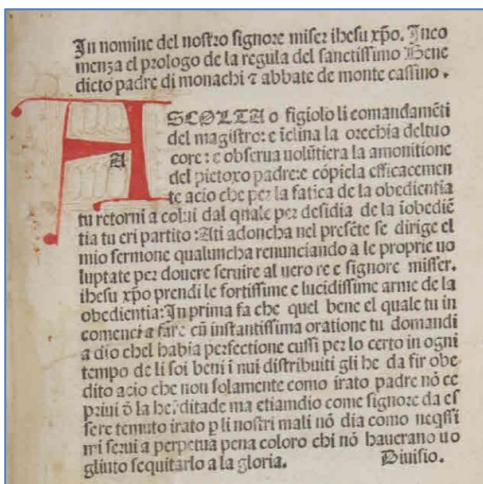 In nomine del nostro signore miser ihesu xpo. Inco
menza el prologo de la regula del sanctissimo Bene
dicto padre di monachi ⁊ abbate de monte cassino.
ASCOLTA o figiolo li comandamēti
del magistro: e īclina la orechia del tuo
A
core: e obserua uolūtiera la amonitione
del pietoxo padre: e cōpiela efficacemen
te acio che per la fatica de la obedientia
tu retorni a colui dal quale per desidia de la īobediē
tia tu eri partito: Alti adoncha nel presēte se dirige el
mio sermone qualuncha renunciando a le proprie uo
luptate per douere seruire al uero re e signore misser.
ihesu xpo prendi le fortissime e lucidissime arme de la
obedientia: In prima fa che quel bene el quale tu in
comenci a fare cū instantissima oratione tu domandi
a dio chel habia perfectione cussi per lo certo in ogni
tempo de li soi beni i nui distribuiti gli he da fir obe
dito acio che non solamente como irato padre nō ce
priui d̄ la heditade ma etiamdio come signore da es
sere temuto irato p̱ li nostri mali nō dia como neq̄ssi
mi serui a perpetua pena coloro chi nō hauerano uo
gliuto sequitarlo a la gloria. Diuisio.